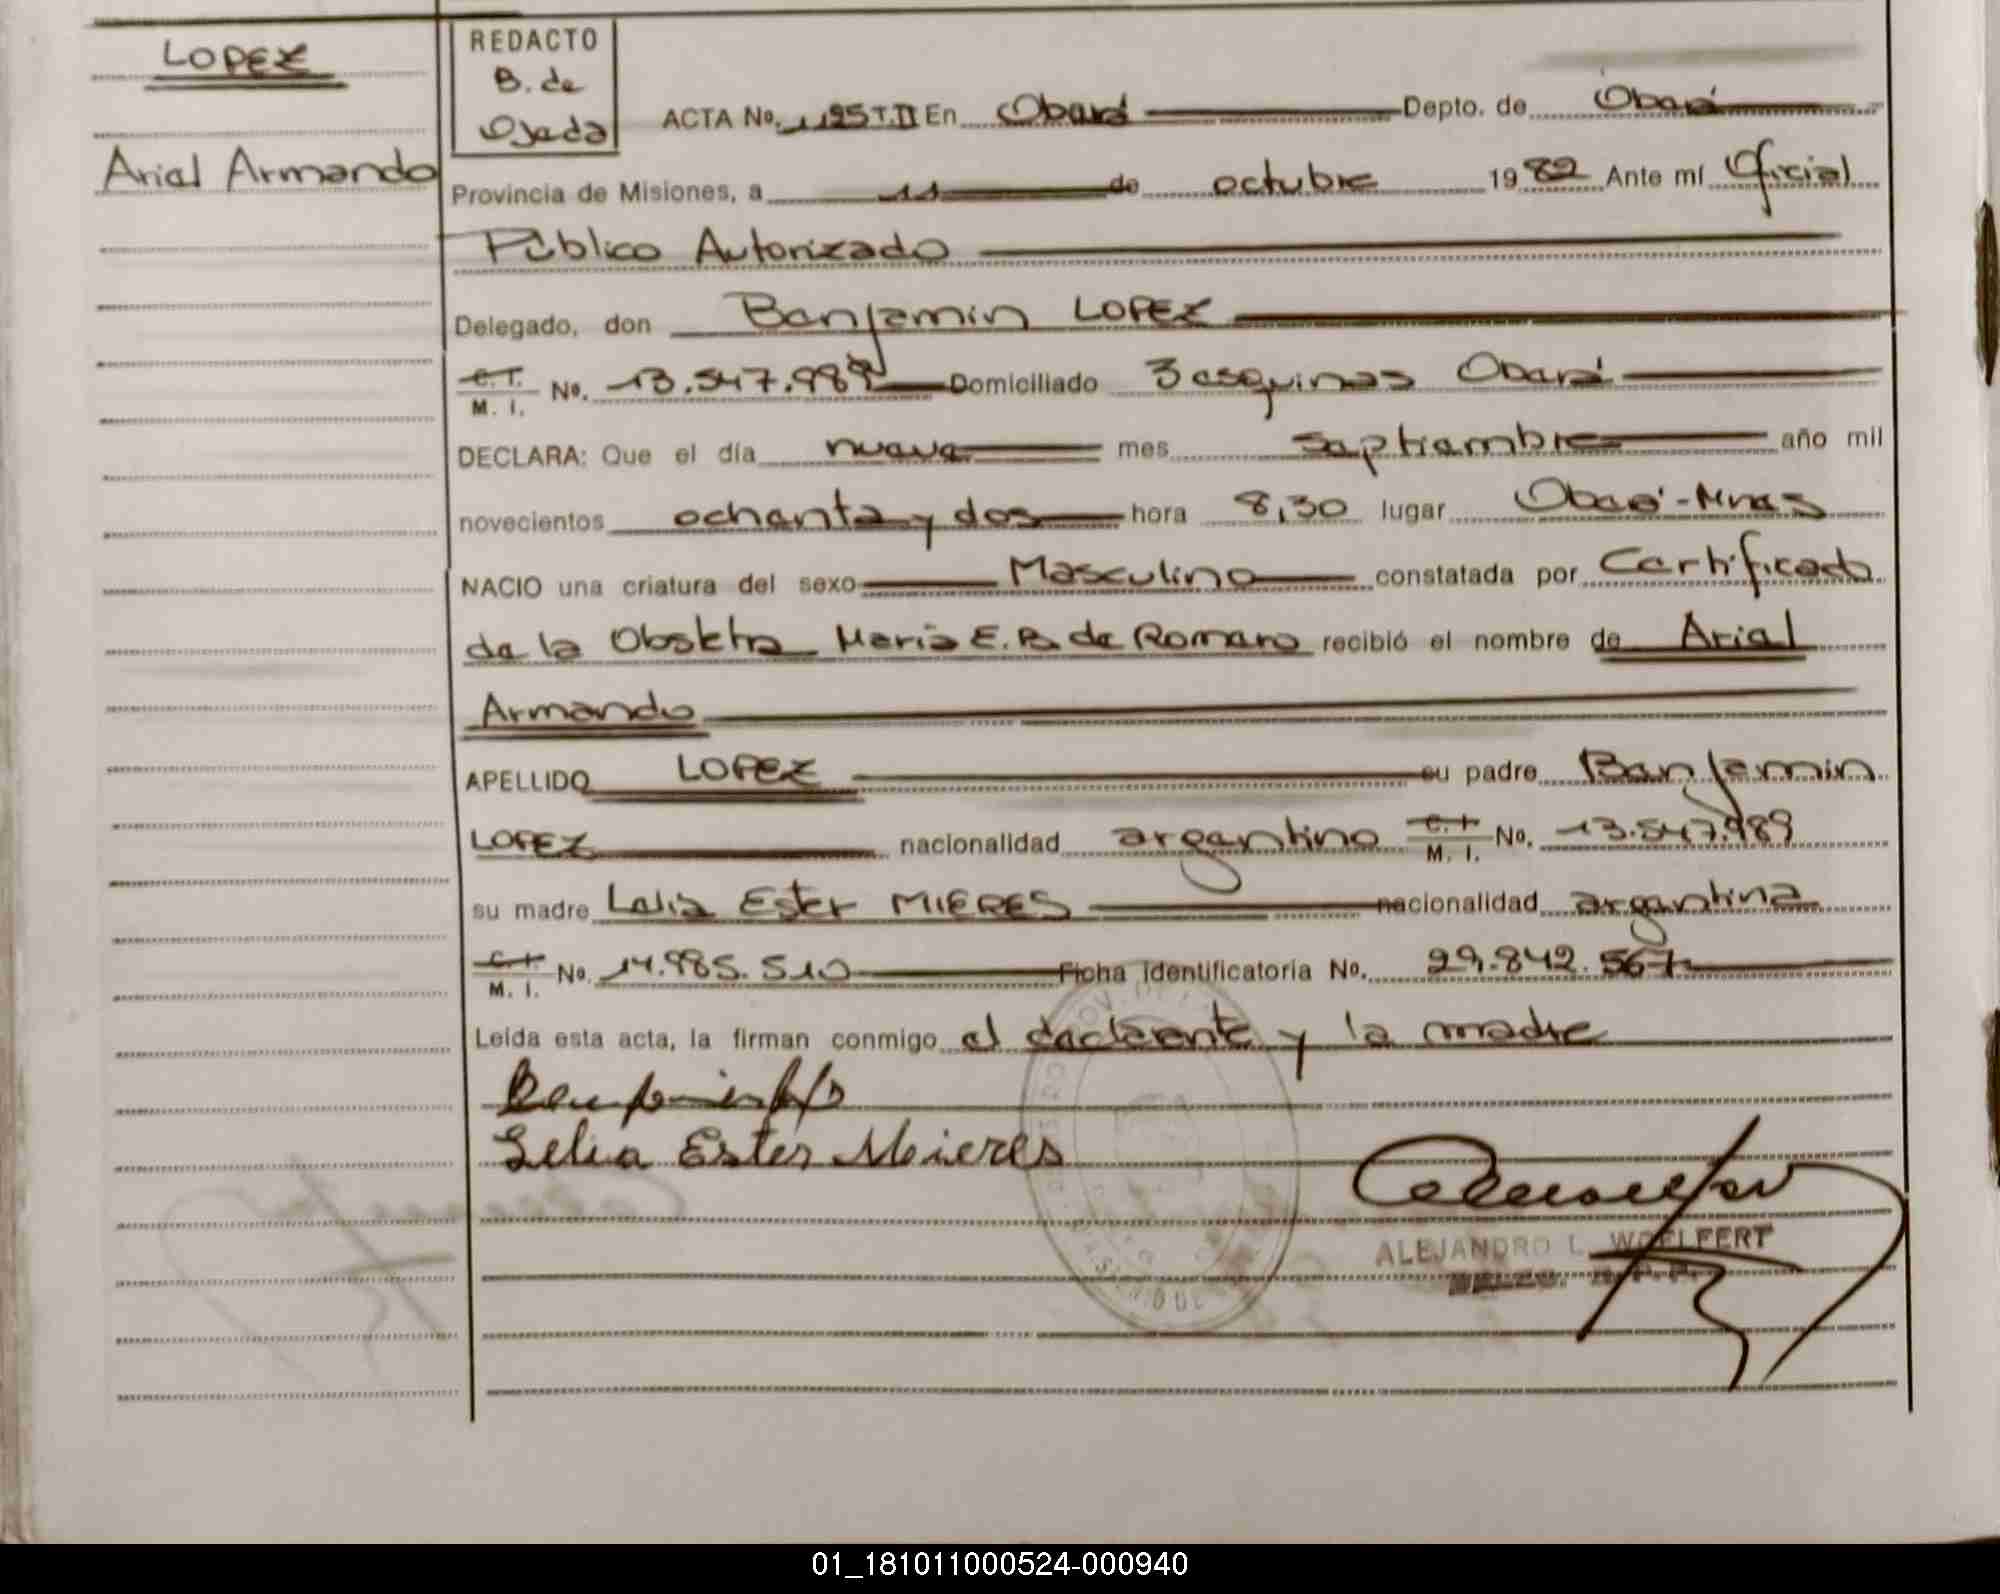 LOPEZ
Ariel Armando
REDACTO
B. de
Ojeda
ACTA No. 1195 T.II En Oberá Depto. de Oberá
Provincia de Misiones, a 11 de octubre 1982 Ante mí Oficial
Público Autorizado
Delegado, don Benjamin LOPEZ
C. I. M. I. No. 13.547.989 Domiciliado 3 esquinas Oberá
DECLARA: Que el día nueve mes septiembre año mil
novecientos ochenta y dos hora 8,30 lugar Oberá-Mnes
NACIO una criatura del sexo Masculino constatada por Certificado
de la Obstetra Maria E. B. de Romero recibió el nombre de Ariel
Armando
APELLIDO LOPEZ su padre Benjamin
LOPEZ nacionalidad argentino C. I. M. I. No. 13.547.989
su madre Lelia Ester MIERES nacionalidad argentina
C. I. M. I. No. 14.985.510 Ficha identificatoria No. 29.842.567
Leída esta acta, la firman conmigo el declarante y la madre
Lelia Ester Mieres
ALEJANDRO L. WOELFERT
01_181011000524-000940